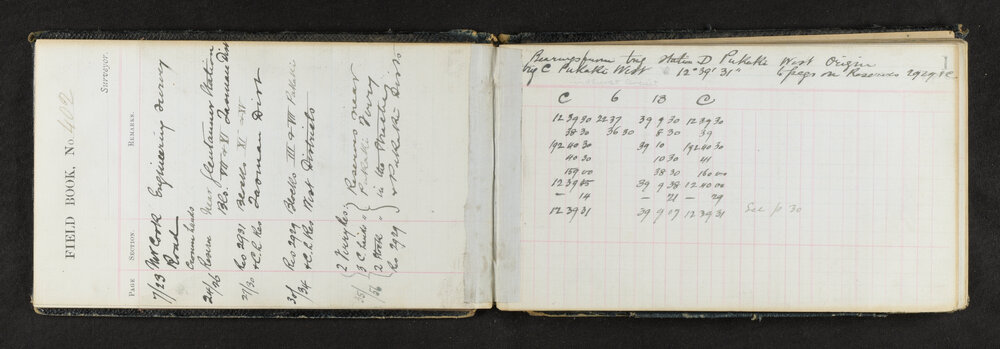 FIELD BOOK, No. 402
Surveyor.
PAGE SECTION. REMARKS.
7/23 Mt Cook Engineering Survey
Road
Crown Lands
24/26 Reserve near Glentanner Station
Blks. VII & XI Jasmine Dist
27/30 Res 2931 Blocks XI & XV
& C.L. Res Tasman Dist
30/34 Res 2929 Blocks III & VII Pukaki
& C.L. Res West Districts
35/36 2 Reserves near
3 C. Lands Pukaki Ferry
2 in the Strachey
Res 2929 & Pukaki Dists
1
Bearings from trig Station D Pukaki West Origin
trig C Pukaki West 12° 39' 31" 6 pegs on Reserves 2929 & C
C 6 13 C
12 39 30 22 37 39 9 30 12 39 30
38 30 36 30 8 30 39
192 40 30 39 10 192 40 30
40 30 10 30 41
159 00 38 30 160 00
12 39 45 39 9 38 12 40 00
— 14 — 21 — 29
12 39 31 39 9 17 12 39 31 See p 30